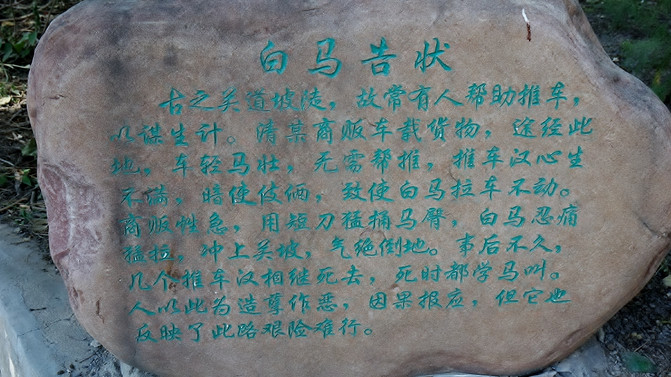 白马告状
古之关道坡陡，故常有人帮助推车，
以谋生计。清某商贩车载货物，途经此
地，车轻马壮，无需帮推，推车汉心生
不满，暗使伎俩，致使白马拉车不动。
商贩性急，用短刀猛捅马臀，白马忍痛
猛拉，冲上关坡，气绝倒地。事后不久，
几个推车汉相继死去，死时都学马叫。
人以此为造孽作恶，因果报应，但它也
反映了此路艰险难行。